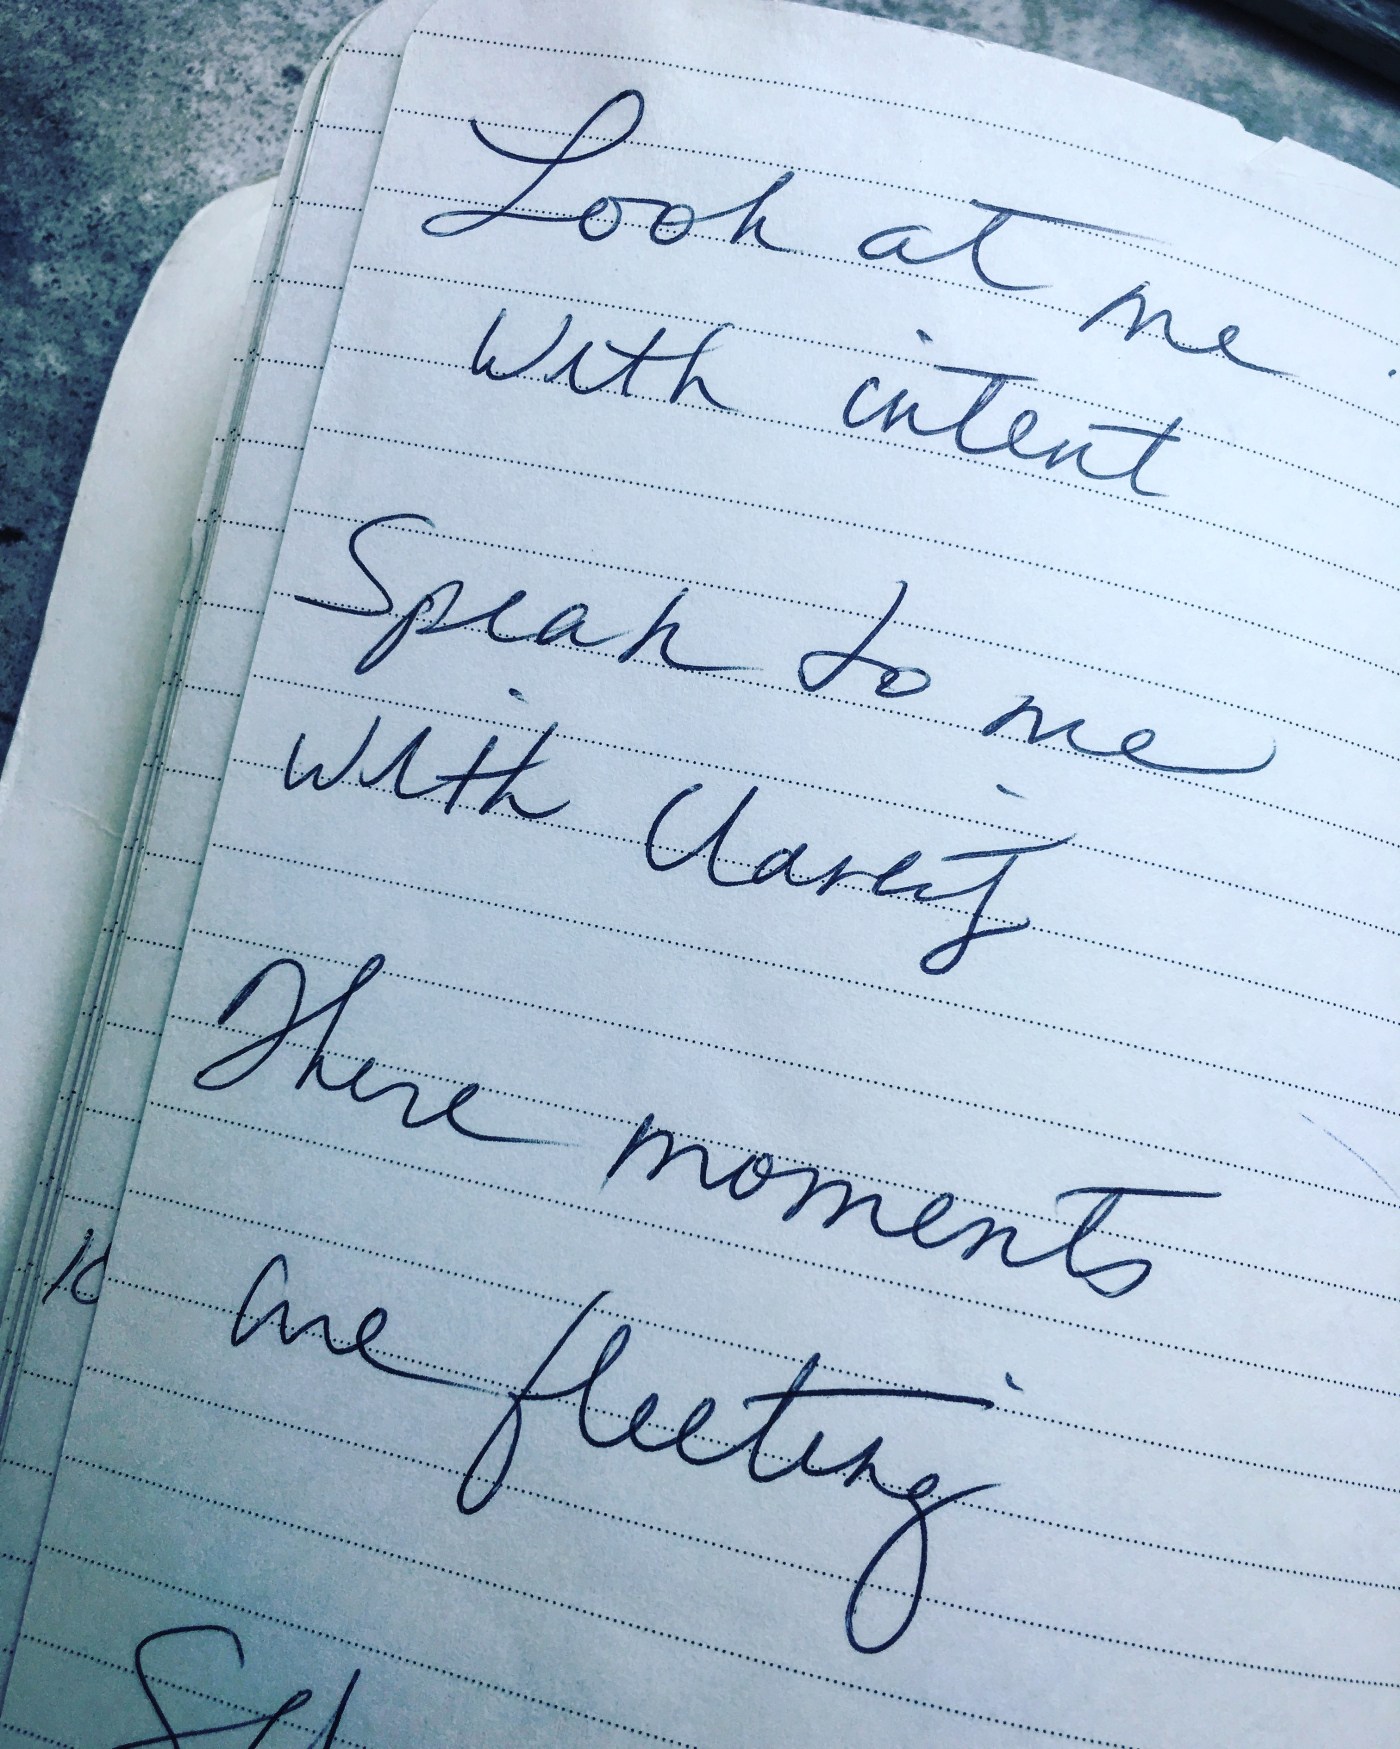 Look at me
With intent
Speak to me
with Clarity
These moments
are fleeting